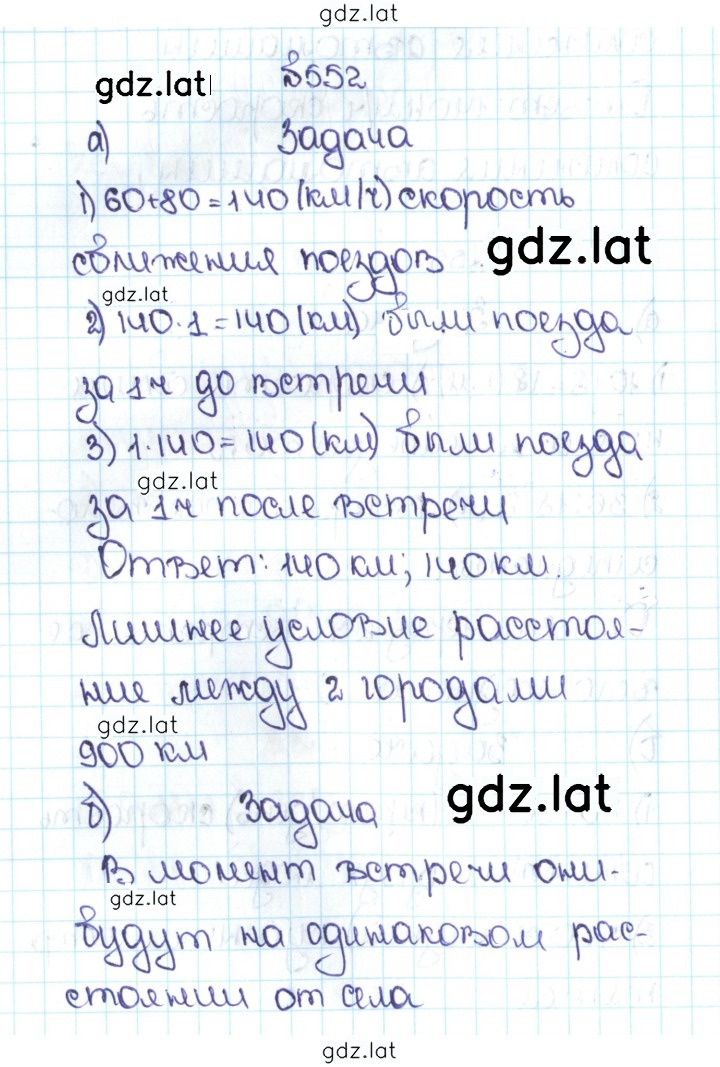 gdz.lat
gdz.lat №552
а) Задача
1) 60+80=140 (км/ч) скорость
сближения поездов gdz.lat
gdz.lat
2) 140·1=140 (км) были поезда
за 1ч до встречи
3) 1·140=140 (км) были поезда
gdz.lat
за 1ч после встречи
Ответ: 140 км; 140 км.
Лишнее условие расстоя-
ние между 2 городами
gdz.lat
900 км
б) Задача gdz.lat
В момент встречи они
gdz.lat
будут на одинаковом рас-
стоянии от села
gdz.lat